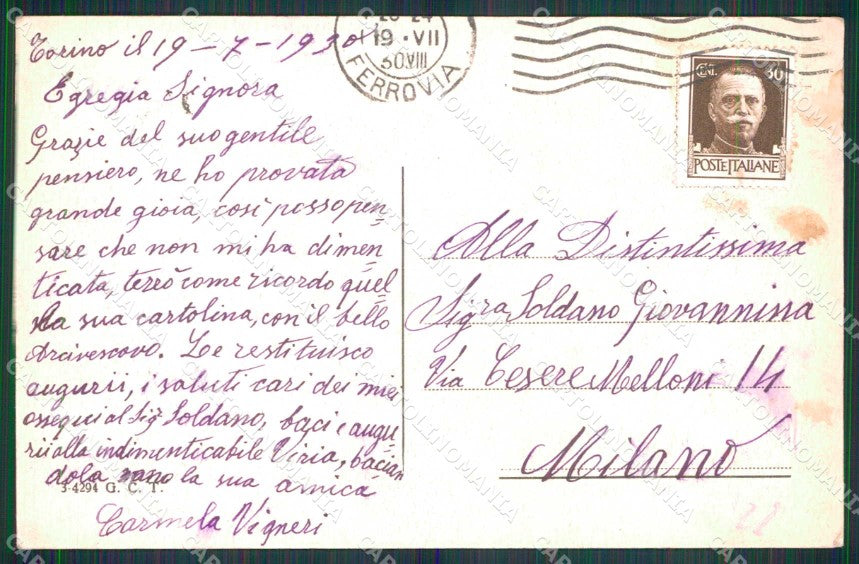 Torino il 19-7-1930
Egregia Signora
Grazie del suo gentile
pensiero, ne ho provata
grande gioia, così posso pen-
sare che non mi ha dimen-
ticata, terrò come ricordo quel-
la sua cartolina, con il bello
Arcivescovo. Le restituisco
augurii, i saluti cari dei miei
ossequi al Sig. Soldano, baci e augu-
rii alla indimenticabile Viria, bacian
dola sono la sua amica
Carmela Vigneri
3-4294 G. C. T.
20-21
19·VII
30.VIII
FERROVIA
CENT. 30
POSTE ITALIANE
Alla Distintissima
Sigra Soldano Giovannina
Via Cesere Melloni 14
Milano
28
CARTOLINOMANIA